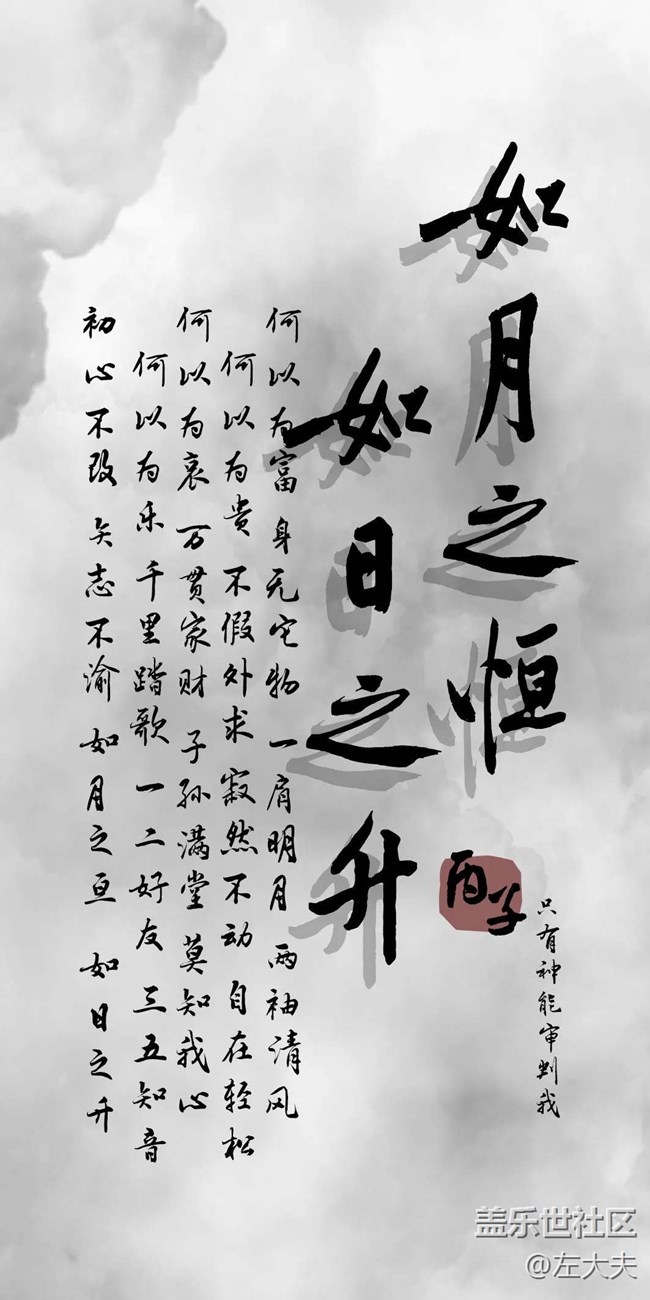 如月之恒
如日之升
只有神能审判我
何以为富 身无它物 一肩明月 两袖清风
何以为贵 不假外求 寂然不动 自在轻松
何以为哀 万贯家财 子孙满堂 莫知我心
何以为乐 千里踏歌 一二好友 三五知音
初心不改 矢志不渝 如月之亘 如日之升
盖乐世社区
@左大夫